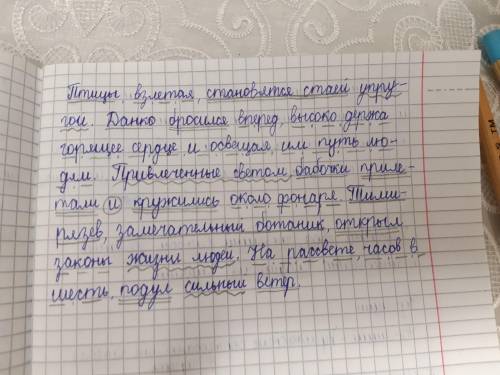 Птицы, взлетая, становятся стаей упру-
гой. Данко бросился вперед, высоко держа
горящее сердце и освещая им путь лю-
дям. Привлеченные светом, бабочки приле-
тали и кружились около фонаря. Тими-
рязев, замечательный ботаник, открыл
законы жизни людей. На рассвете, часов в
шесть, подул сильный ветер.